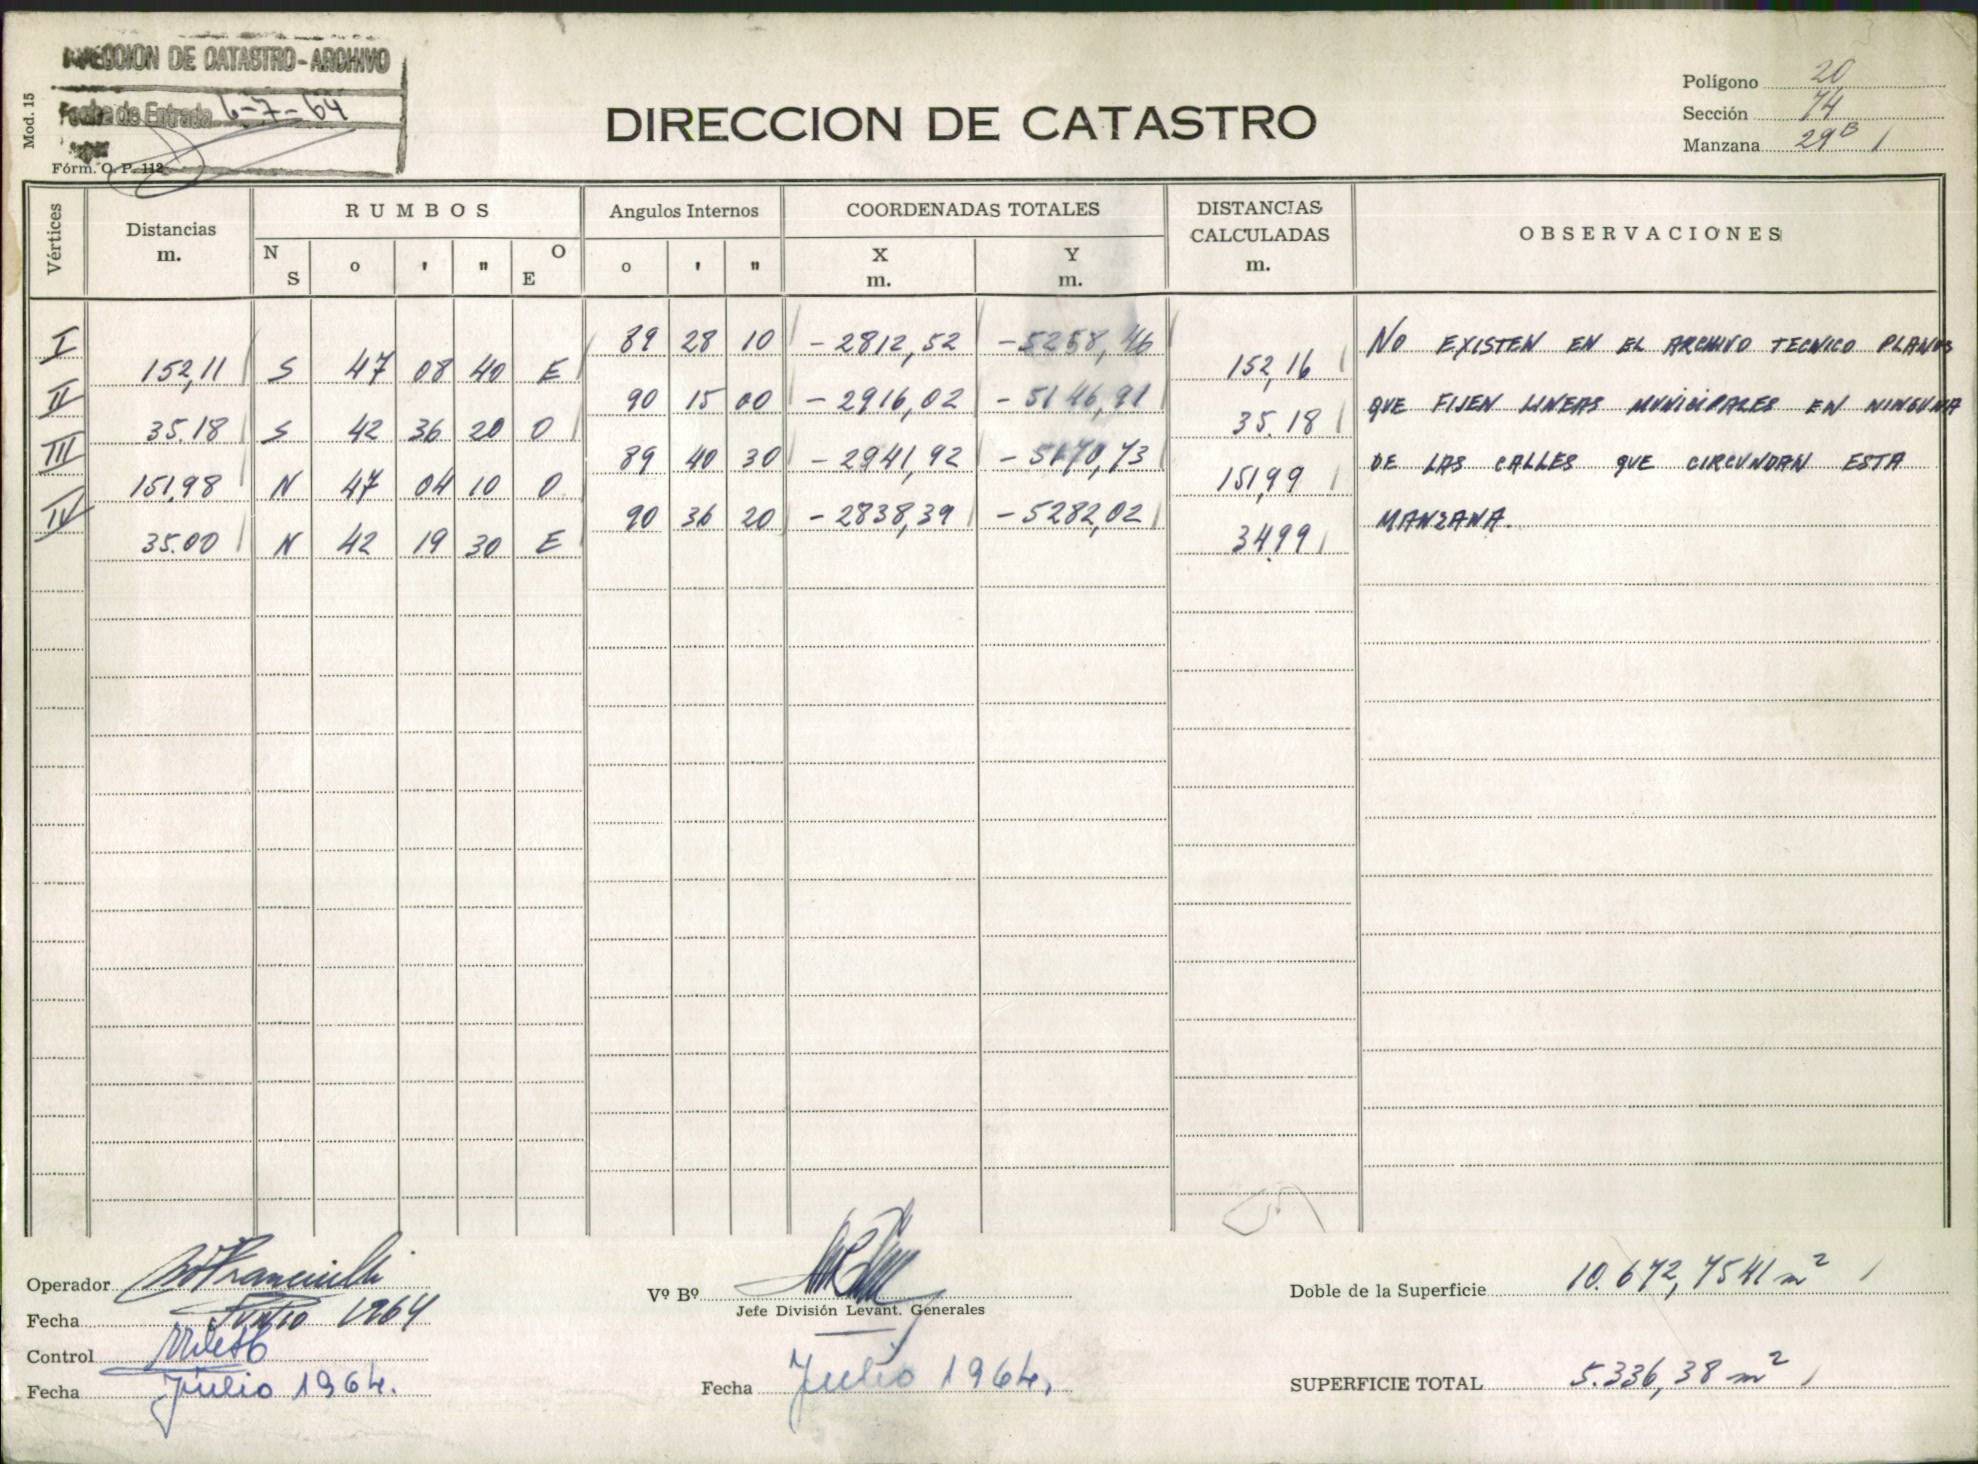 DIRECCION DE CATASTRO-ARCHIVO
Fecha de Entrada 6-7-64
Mod. 15
Fórm. O. P. 112
DIRECCION DE CATASTRO
Polígono 20
Sección 74
Manzana 29B
Vértices Distancias m. RUMBOS Angulos Internos COORDENADAS TOTALES DISTANCIAS CALCULADAS m. OBSERVACIONES
N S o ' " O E o ' " X m. Y m.
I 89 28 10 -2812,52 -5258,46 No EXISTEN EN EL ARCHIVO TECNICO PLANOS
152,11 S 47 08 40 E 152,16
II 90 15 00 -2916,02 -5146,91 QUE FIJEN LINEAS MUNICIPALES EN NINGUNA
35.18 S 42 36 20 O 35.18
III 89 40 30 -2941,92 -5170,73 DE LAS CALLES QUE CIRCUNDAN ESTA
151,98 N 47 04 10 O 151,99
IV 90 36 20 -2838,39 -5282,02 MANZANA.
35.00 N 42 19 30 E 34,99
Operador
Fecha Junio 1964
Control
Fecha Julio 1964.
Vº Bº
Jefe División Levant. Generales
Fecha Julio 1964.
Doble de la Superficie 10.672,7541 m2
SUPERFICIE TOTAL 5.336,38 m2